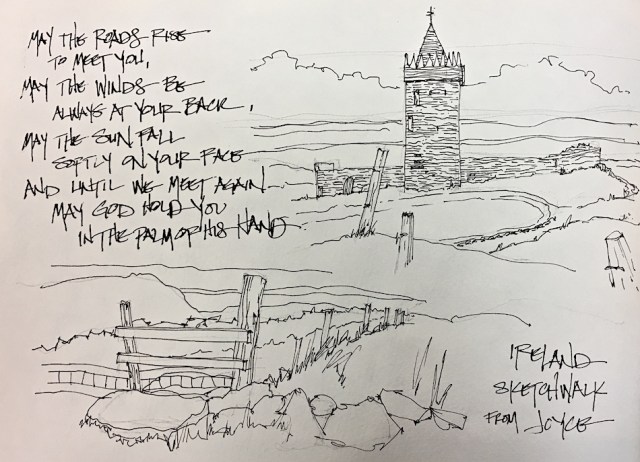 MAY THE ROADS RISE
TO MEET YOU,
MAY THE WINDS BE
ALWAYS AT YOUR BACK,
MAY THE SUN FALL
SOFTLY ON YOUR FACE
AND UNTIL WE MEET AGAIN
MAY GOD HOLD YOU
IN THE PALM OF HIS HAND
IRELAND
SKETCHWALK
FROM JOYCE